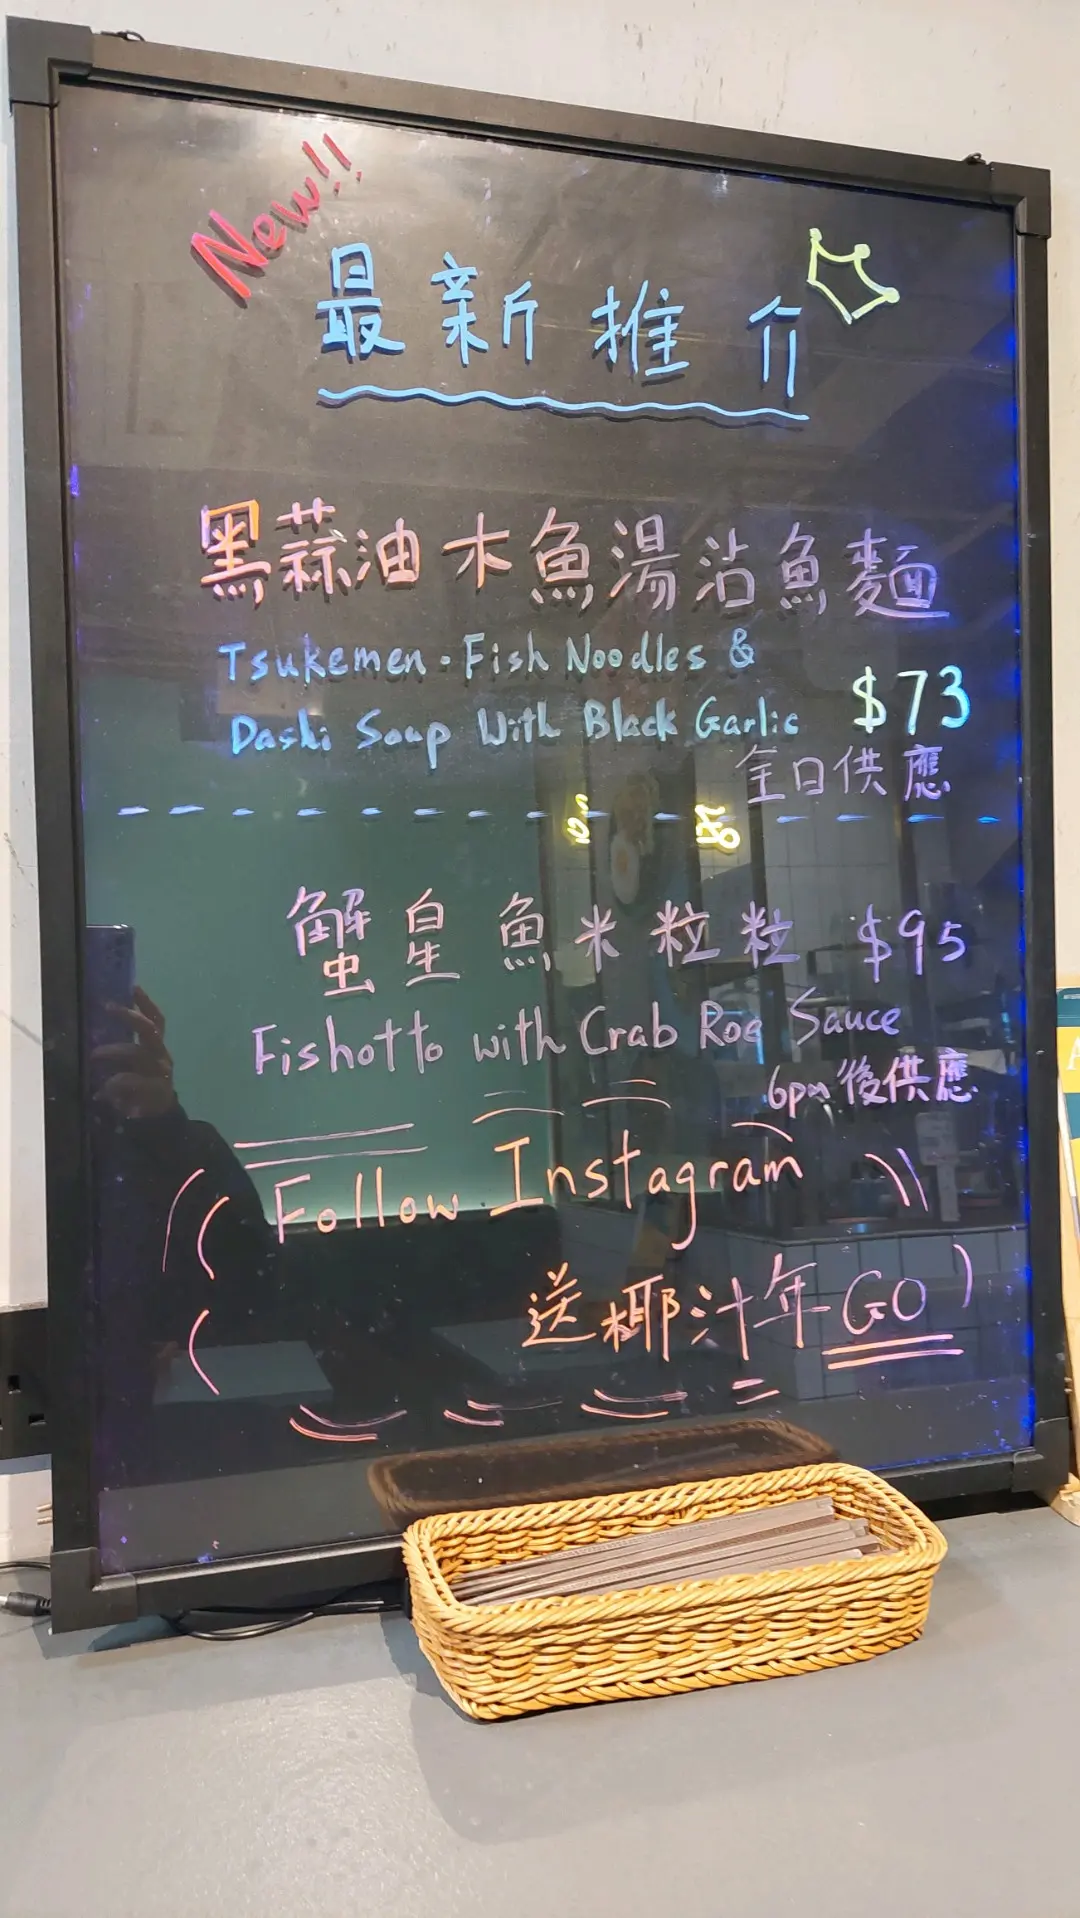 New!!
最新推介
黑蒜油木魚湯沾魚麵
Tsukemen·Fish Noodles &
Dashi Soup With Black Garlic $73
全日供應
蟹皇魚米粒粒 $95
Fishotto with Crab Roe Sauce
6pm後供應
Follow Instagram
送椰汁年GO